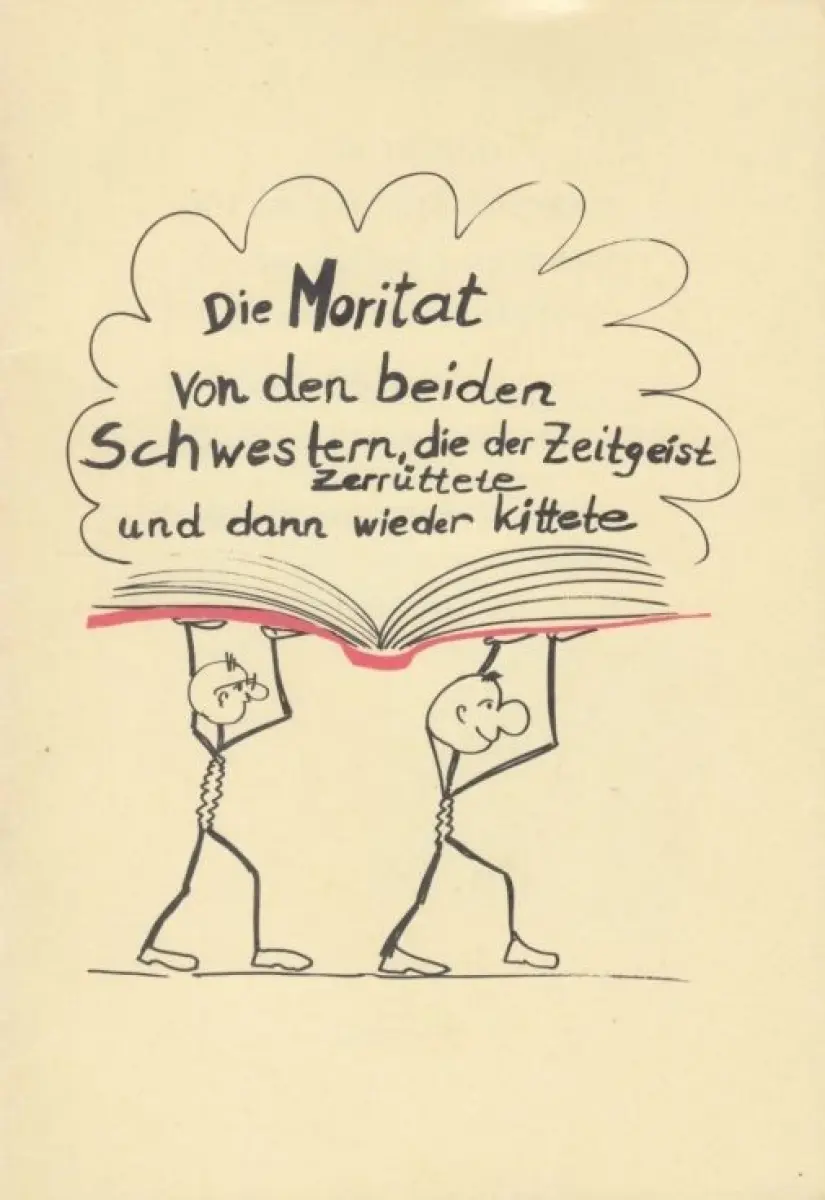 Die Moritat
von den beiden
Schwestern, die der Zeitgeist
zerrüttete
und dann wieder kittete